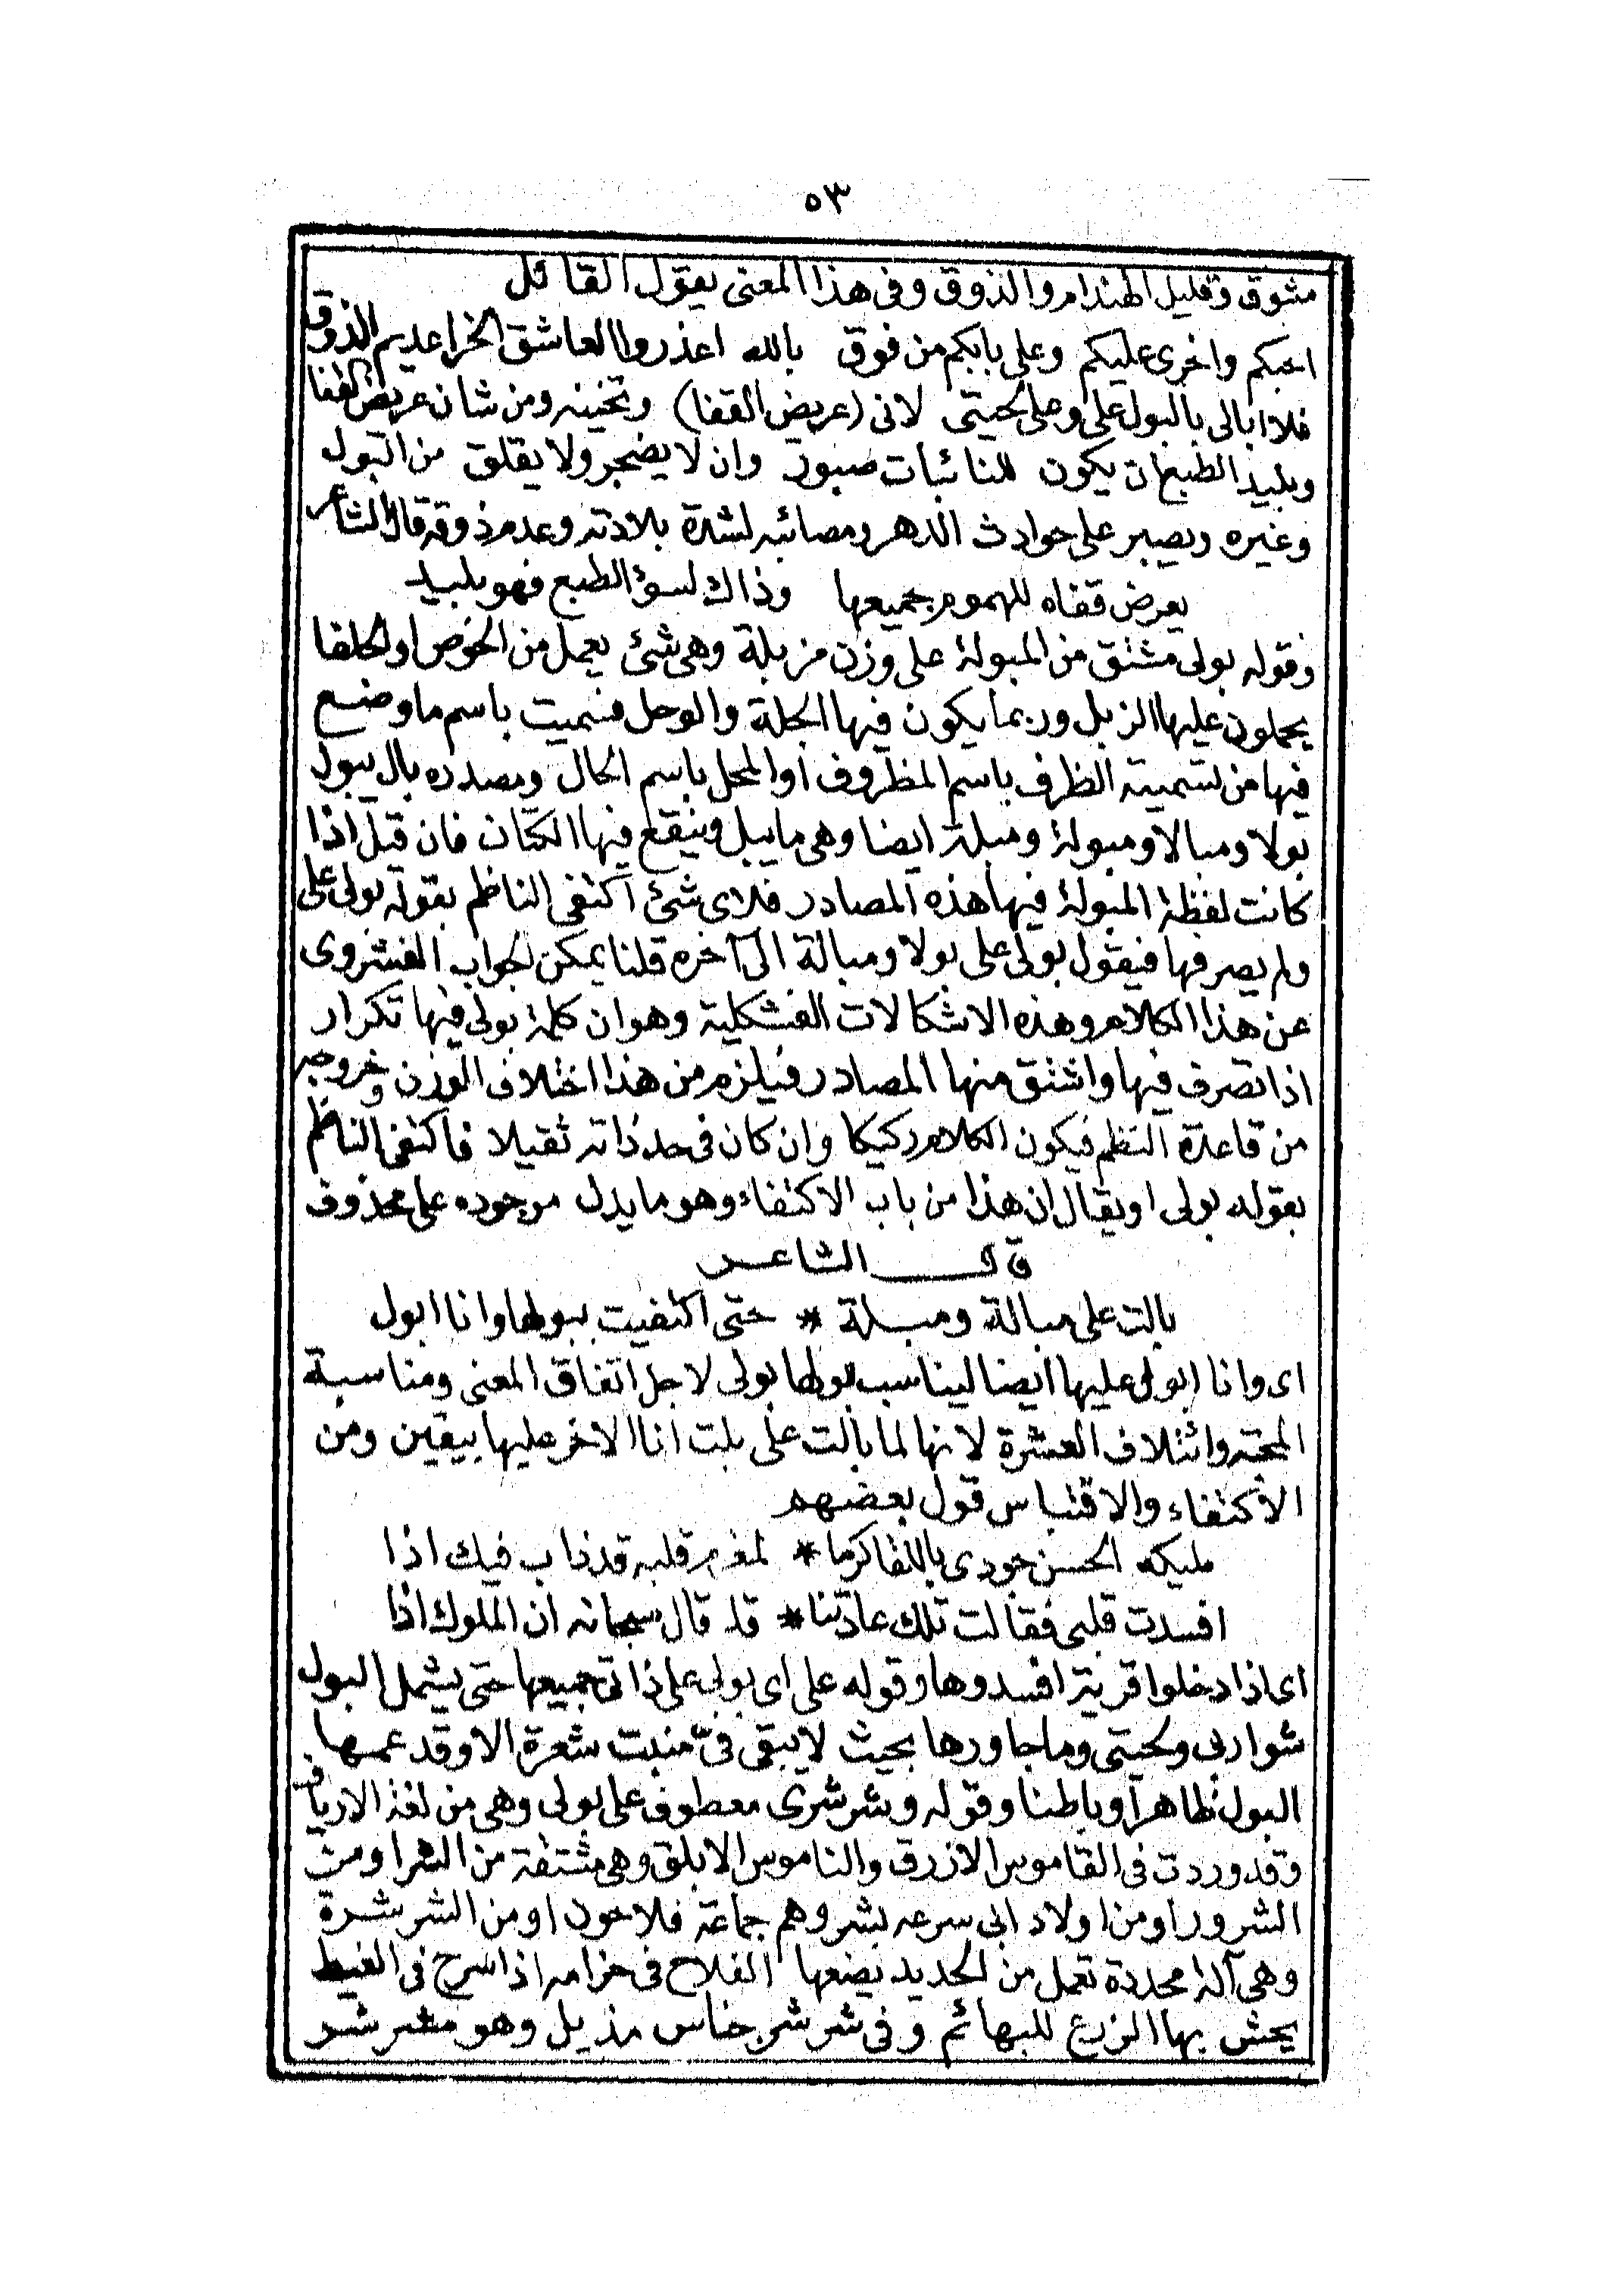 ٥٣
مشوق وقليل الهندام والذوق وفى هذا المعنى يقول القائل
احبكم واخرى عليكم وعلى بابكم من فوق بالله اعذروا العاشق الخرا عديم الذوق
فلا ابالى بالبول على وعلى لحيتى لانى (عريض القفا) وتخينه ومن شان عريض القفا
وبليد الطبع ان يكون للنائبات صبور وان لا يضجر ولا يقلق من البول
وغيره ويصبر على حوادث الدهر ومصائبه لشدة بلادته وعدم ذوقه قال الشاعر
يعرض قفاه للهموم جميعها وذاك لسؤ الطبع فهو بليد
وقوله بولى مشتق من المبولة على وزن مزبلة وهى شئ يعمل من الخوص او الحلفا
يحملون عليها الزبل وربما يكون فيها الجلة والوحل فسميت باسم ما وضع
فيها من تسمية الظرف باسم المظروف او المحل باسم الحال ومصدره بال يبول
بولا ومبالا ومبولة ومبلة ايضا وهى ما يبل وينقع فيها الكتان فان قيل اذا
كانت لفظة المبولة فيها هذه المصادر فلاى شئ اكتفى الناظم بقوله بولى على
ولم يصرفها فيقول بولى على بولا ومبالة الى آخره قلنا يمكن لجواب الفشروى
عن هذا الكلام وهذه الاشكالات الفشكلية وهو ان كلمة بولى فيها تكرار
اذا تصرف فيها واشتق منها المصادر فيلزم من هذا اختلاف الوزن وخروجه
من قاعدة النظم فيكون الكلام ركيكا وان كان فى حد ذاته ثقيلا فاكتفى الناظم
بقوله بولى او يقال ان هذا من باب الاكتفاء وهو ما يدل موجوده على محذوف
قال الشاعر
بالت على مبالة ومبلة * حتى اكتفيت ببولها وانا ابول
اى وانا ابول عليها ايضا ليناسب بولها بولى لاجل اتفاق المعنى ومناسبة
المحبة وائتلاف العشرة لانها لما بالت على بلت انا الاخر عليها بيقين ومن
الاكتفاء والاقتباس قول بعضهم
مليكة الحسن جودى باللقا كرما * لمغرم قلبه قد ذاب فيك اذا
افسدت قلبى فقالت تلك عادتنا * قد قال سبحانه ان الملوك اذا
اى اذا دخلوا قرية افسدوها وقوله على اى بولى على ذاتى جميعها حتى يشمل البول
شواربى ولحيتى وما جاورها بحيث لا يبقى فىّ منبت شعرة الا وقد عمها
البول ظاهرا وباطنا وقوله وشرشرى معطوف على بولى وهى من لغة الارياف
وقد وردت فى القاموس الازرق والناموس الابلق وهى مشتقة من الشر او من
الشرور او من اولاد ابى سرعه بشر وهم جماعة فلاحون او من الشرشرة
وهى آلة محددة تعمل من الحديد يضعها الفلاح فى حزامه اذا سرح فى الغيط
يحش بها الزرع للبهائم وفى شرشر جناس مذيل وهو مشرشر